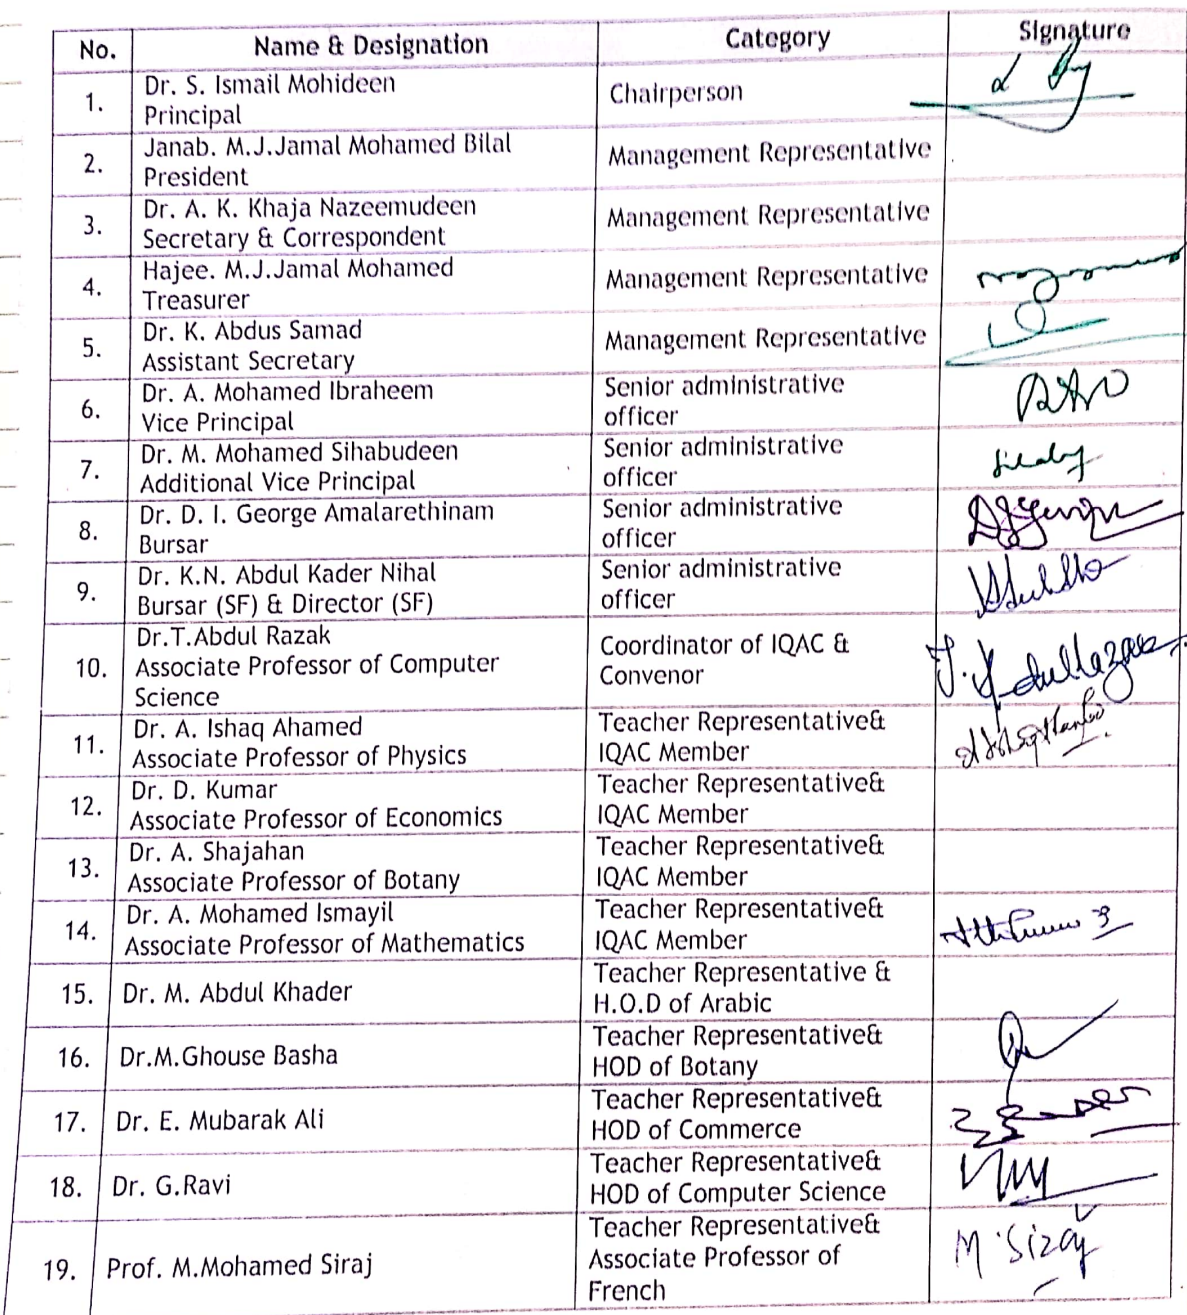 No. Name & Designation Category Signature
1. Dr. S. Ismail Mohideen
Principal
Chairperson
2. Janab. M.J.Jamal Mohamed Bilal
President
Management Representative
3. Dr. A. K. Khaja Nazeemudeen
Secretary & Correspondent
Management Representative
4. Hajee. M.J.Jamal Mohamed
Treasurer
Management Representative
5. Dr. K. Abdus Samad
Assistant Secretary
Management Representative
6. Dr. A. Mohamed Ibraheem
Vice Principal
Senior administrative
officer
7. Dr. M. Mohamed Sihabudeen
Additional Vice Principal
Senior administrative
officer
8. Dr. D. I. George Amalarethinam
Bursar
Senior administrative
officer
9. Dr. K.N. Abdul Kader Nihal
Bursar (SF) & Director (SF)
Senior administrative
officer
10. Dr.T.Abdul Razak
Associate Professor of Computer
Science
Coordinator of IQAC &
Convenor
11. Dr. A. Ishaq Ahamed
Associate Professor of Physics
Teacher Representative&
IQAC Member
12. Dr. D. Kumar
Associate Professor of Economics
Teacher Representative&
IQAC Member
13. Dr. A. Shajahan
Associate Professor of Botany
Teacher Representative&
IQAC Member
14. Dr. A. Mohamed Ismayil
Associate Professor of Mathematics
Teacher Representative&
IQAC Member
15. Dr. M. Abdul Khader
Teacher Representative &
H.O.D of Arabic
16. Dr.M.Ghouse Basha
Teacher Representative&
HOD of Botany
17. Dr. E. Mubarak Ali
Teacher Representative&
HOD of Commerce
18. Dr. G.Ravi
Teacher Representative&
HOD of Computer Science
19. Prof. M.Mohamed Siraj
Teacher Representative&
Associate Professor of
French
M. Siraj